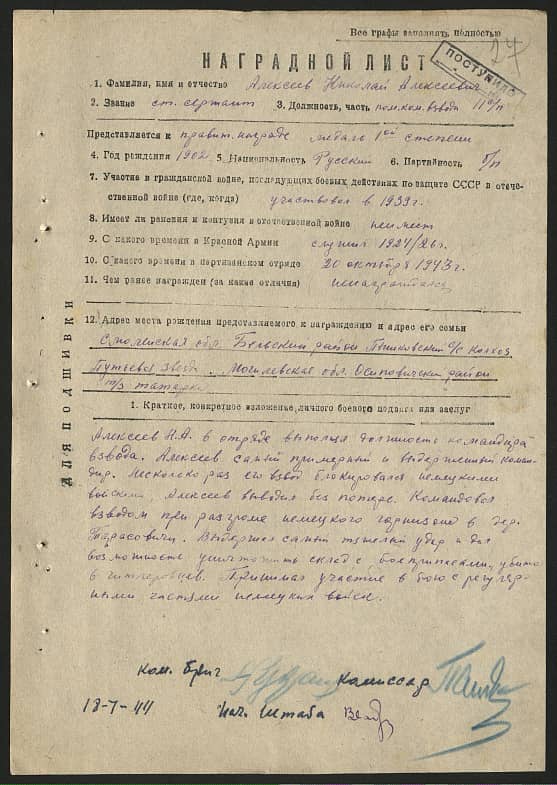 Все графы заполнять полностью
27
НАГРАДНОЙ ЛИСТ
ПОСТУПИЛО
1. Фамилия, имя и отчество Алексеев Николай Алексеевич
2. Звание ст. сержант 3. Должность, часть пом. ком. взвода
Представляется к правит. награде медаль 1ой степени
4. Год рождения 1902 5 Национальность Русский 6. Партийность б/п
7. Участие в гражданской войне, последующих боевых действиях по защите СССР в отече-
ственной войне (где, когда) участвовал в 1939г.
8. Имеет ли ранения и контузии в отечественной войне не имеет
9. С какого времени в Красной Армии служил 1924/26г.
10. С какого времени в партизанском отряде 20 октября 1943г.
11. Чем ранее награжден (за какие отличия) не награждался
ДЛЯ ПОДШИВКИ
12. Адрес места рождения представляемого к награждению и адрес его семьи
Смоленская обл. Бельский район с/с колхоз
Путевая звезда. Могилевская обл. Осиповичский район
татарка
1. Краткое, конкретное изложение личного боевого подвига или заслуг
Алексеев Н.А. в отряде выполнял должность командира
взвода. Алексеев самый примерный и выдержанный коман-
дир. Несколько раз его взвод блокировался немецкими
войсками, Алексеев выводил без потерь. Командовал
взводом при разгроме немецкого гарнизона в дер.
Тарасовичи. Выдержал самый тяжелый удар и дал
возможность уничтожить склад с боеприпасами, убито
6 гитлеровцев. Принимал участие в бою с регуляр-
ными частями немецких войск.
Ком. бриг Комиссар
18-7-44 Нач. штаба